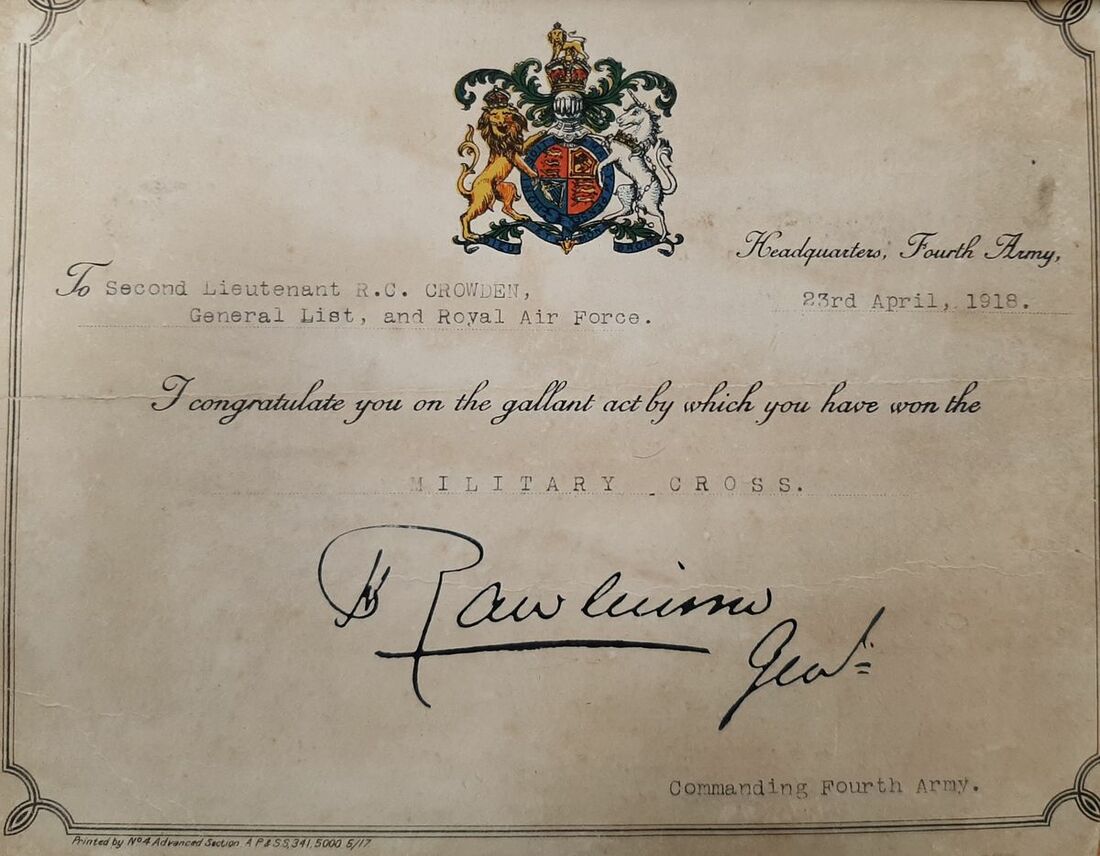 Headquarters, Fourth Army,
To Second Lieutenant R.C. CROWDEN,
23rd April, 1918.
General List, and Royal Air Force.
I congratulate you on the gallant act by which you have won the
MILITARY CROSS.
H Rawlinson
Genl
Commanding Fourth Army.
Printed by No 4 Advanced Section A P & S S, 341, 5000 5/17